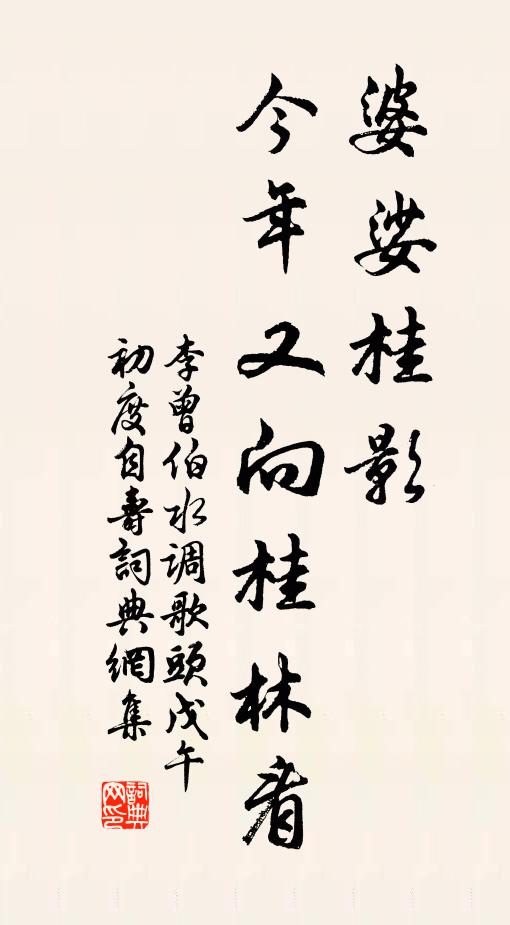 婆娑桂影
今年又向桂林看
李曾伯水调歌頭戊午
初度自壽詞典網集
詞典网印